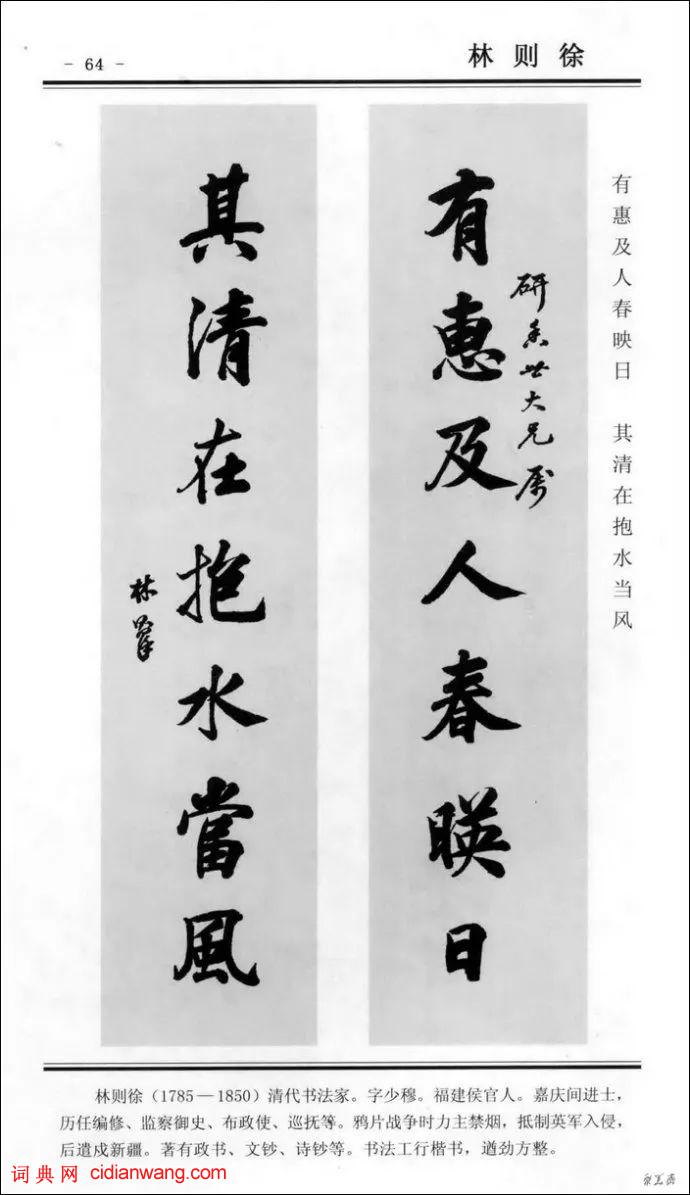 - 64 -
林则徐
有惠及人春映日　其清在抱水当风
研香世大兄属
有惠及人春暎日
其清在抱水當風
林则徐（1785—1850）清代书法家。字少穆。福建侯官人。嘉庆间进士，
历任编修、监察御史、布政使、巡抚等。鸦片战争时力主禁烟，抵制英军入侵，
后遣戍新疆。著有政书、文钞、诗钞等。书法工行楷书，遒劲方整。
词典网 cidianwang.com